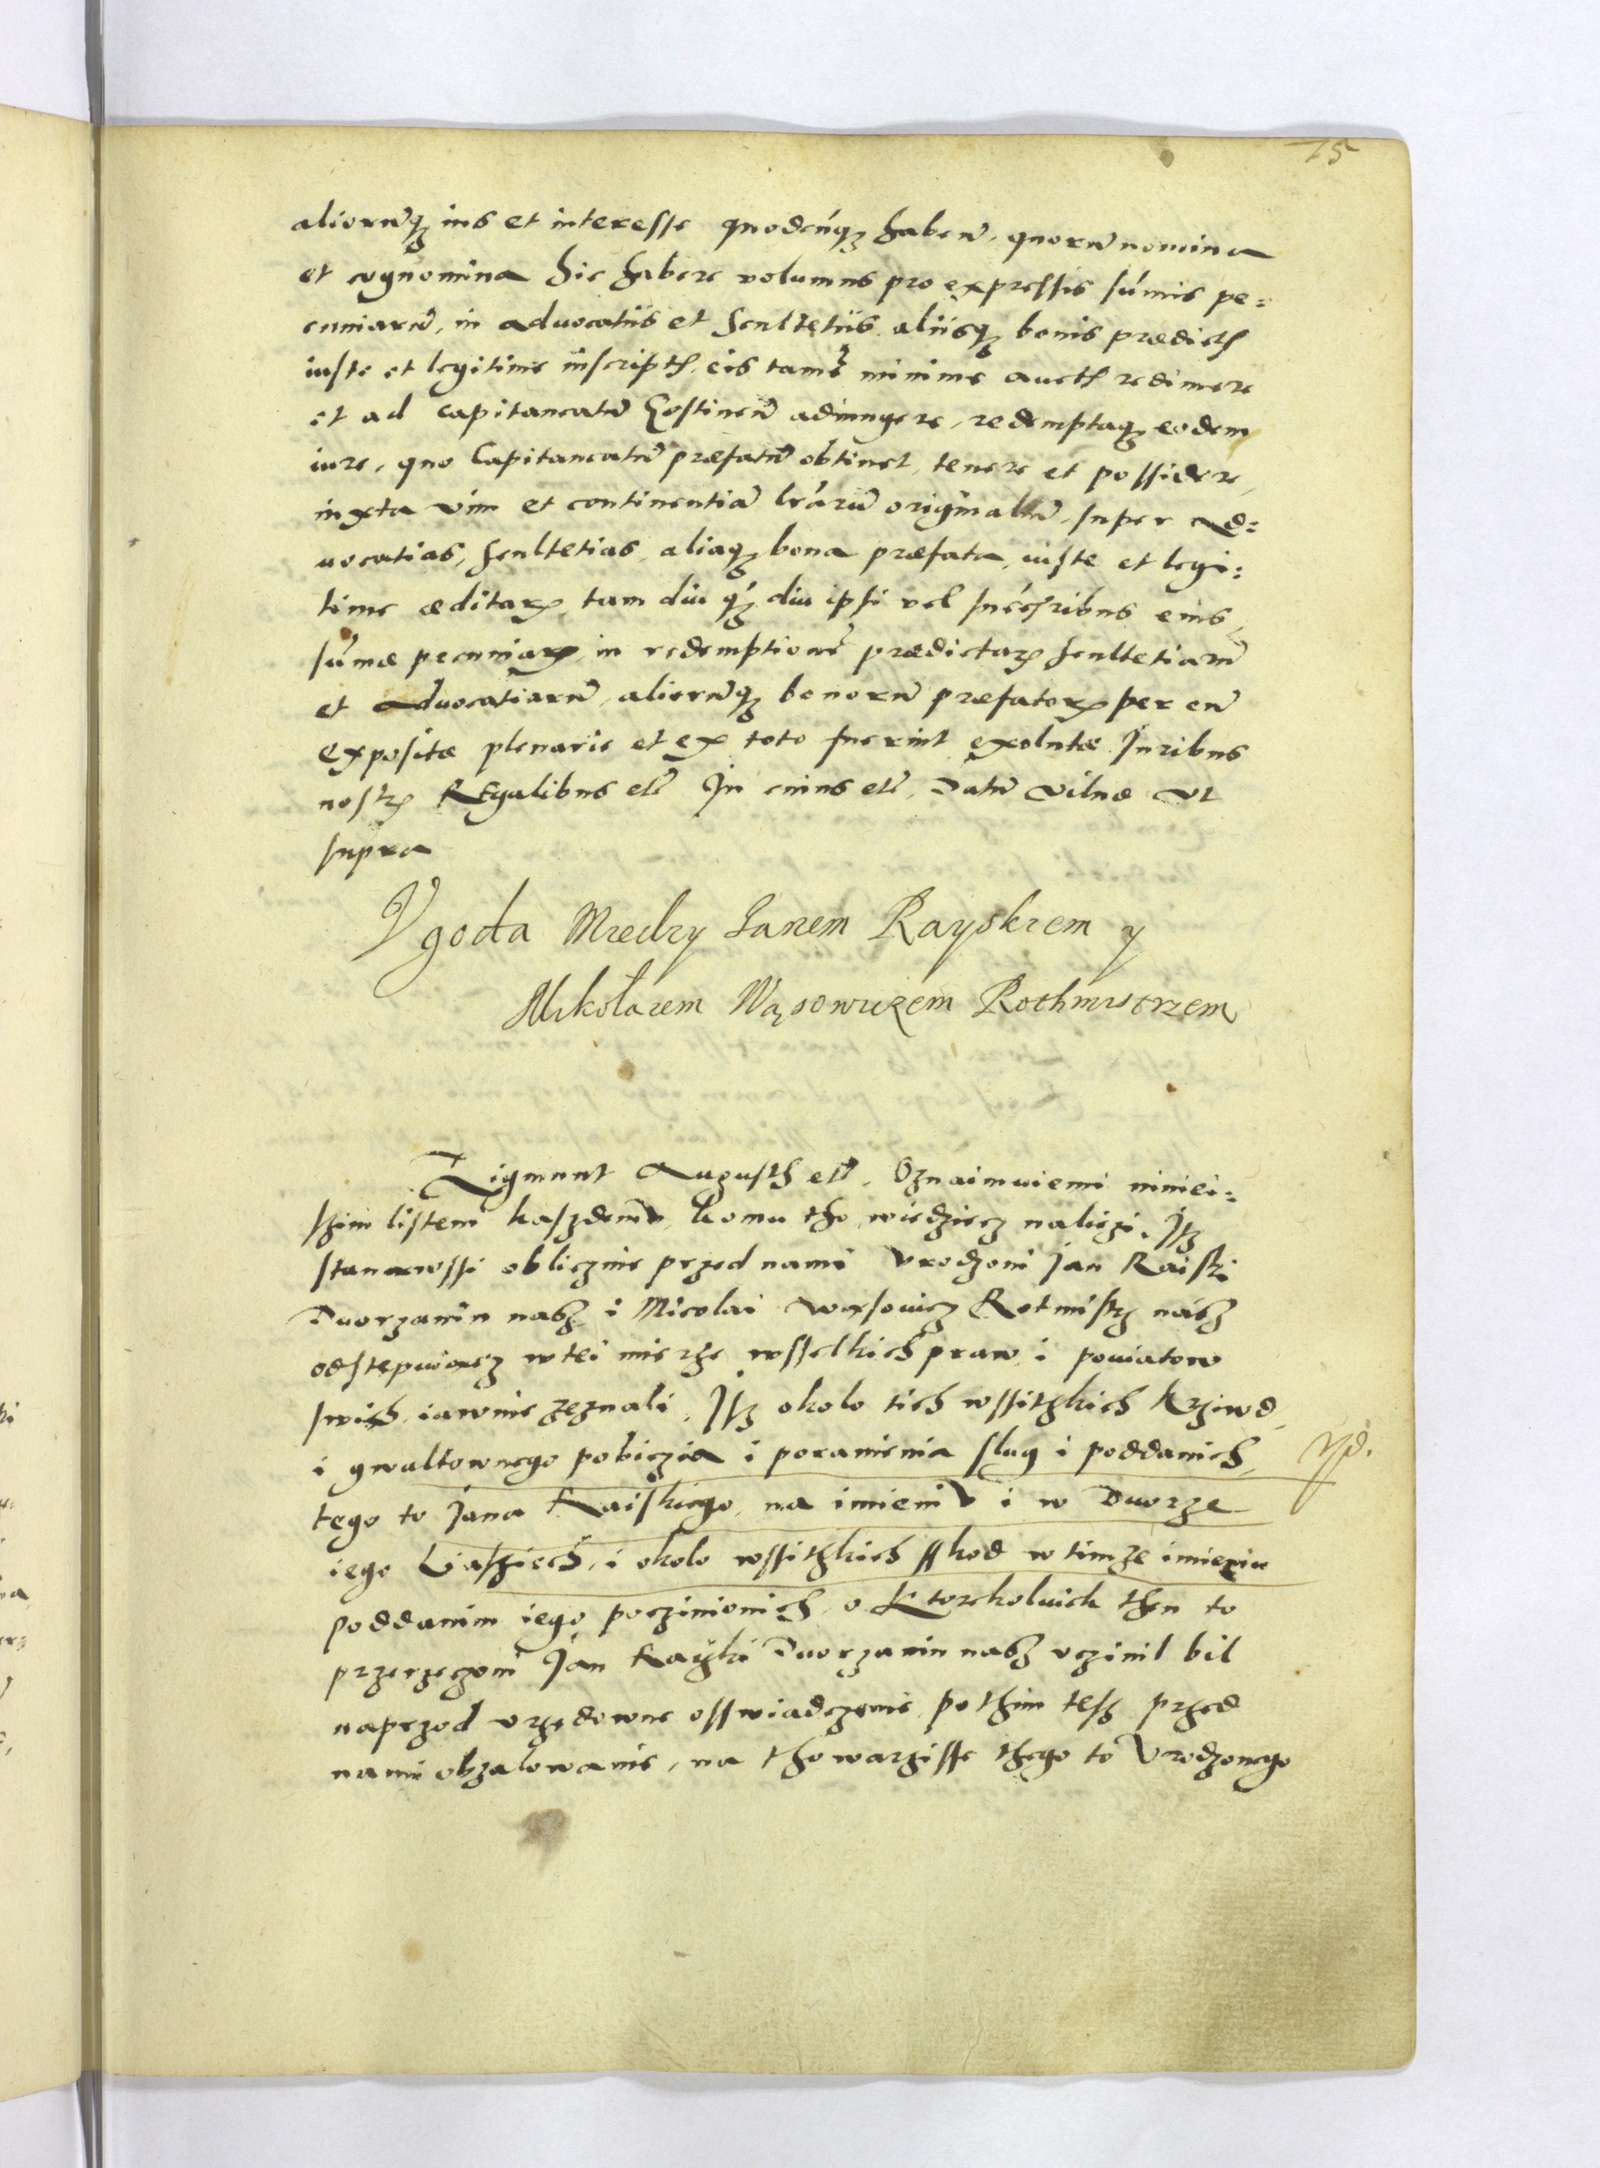 75
aliorumq₃ ius et interesse quodcunq₃ haben̄. quorū nomina
et cognomina hic habere volumus pro expressis sūmis pe=
cuniarū, in advocatiis et scultetiis aliisq₃ bonis prædict̄
iuste et legitime inscript̄. eis tamē minime auct̄ redimere
et ad Capitaneatū Costinen̄ adiungere, redemptaq₃ eodem
iure, quo Capitaneatū præfatū obtinet, tenere et possidere,
iuxta vim et continentiā lr̄arū originaliū, super ad=
vocatias, scultetias, aliaq₃ bona præfata, iuste et legi=
time æditarꝝ, tam diu q̄₃ diu ipsi vel succ̄ribus eius
sūmæ pecuniarꝝ in redemptionē prædictarꝝ scultetiarū
et advocatiarū, aliorumq₃ bonorū præfatorꝝ per eū
expositæ plenarie et ex toto fuerint exolutæ Juribus
nostꝝ Regalibus etc̄ Jn cuius etc̄, Datū Vilnæ vt
supra
Vgoda Miedzy Ianem Rayskiem y
Mikołaiem Wąsowiczem Rothmistrzem
Zigmunt Augusth etc̄. Oznaimuiemi niniei=
szim listem kaszdemv, komu tho wiedziecz należi, Jsz
stanąwssi oblicznie przed nami Vrodzoni Jan Raiski
Dvorzanin nasz i Micolai Wąsovicz Rotmistz nász
odstępuiącz w tei mierze wsselkich praw i poviatow
swich iawnie zeznali, Jsz okolo tich wssitzkich krziwd
i gwaltownego pobiczia i poranienia slug i poddanich,
tego to Jana Raiskiego, na imieniv i w Dvorze
iego Liaskiech, i okolo wssitzkich sskod w timze imieniu
poddanim iego poczinionich, o ktorekolvick then to
przerzeczoni Jan Rayski Dvorzanin nasz vczinil bil
naprzod vrzędowne osswiadczenie, pothim tesz przed
nami obzalowanie, na thowarzisse thego to Vrodzonego